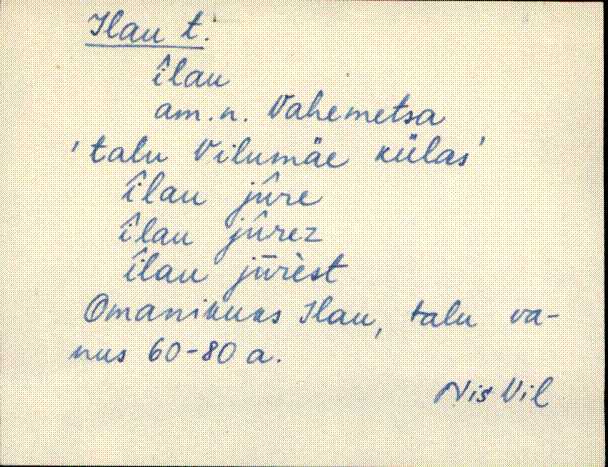 Ilau t.
îlau
am.n. Vahemetsa
'talu Vilumäe külas'
îlau jûre
îlau jûrez
îlau jūrèst
Omanikuks Ilau, talu va-
nus 60-80 a.
Nis Vil